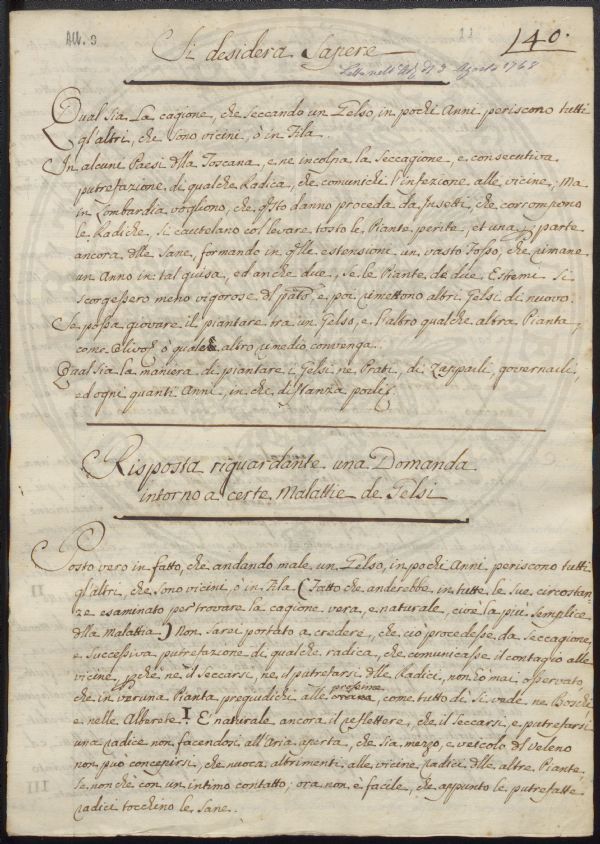 All. 3
11
140.
Si desidera Sapere
Letta nell' Ad. di 3 Agosto 1768
Qual sia La cagione, che seccando un Gelso, in pochi Anni periscono tutti
gl'altri, che sono vicini, ò in Fila.
In alcuni Paesi dlla Toscana, e ne incolpa la seccagione, e consecutiva
putrefazione di qualche Radica, che comunichi l'infezione alle vicine; Ma
in Lombardia vogliono, che qsto danno proceda da Insetti, che corrompono
le Radiche. Si cautelano col levare tosto le Piante perite, et una parte
ancora dlle Sane, formando in qlle estensioni un vasto Fosso, che rimane
un Anno in tal guisa, ed anche due, se le Piante de due Estremi si
scorgessero meno vigorose dl pato, e poi rimettono altri Gelsi di nuovo.
Se possa giovare il piantare tra un Gelso, e l'altro qualche altra Pianta,
come Olivo, ò quale altro rimedio convenga.
Qual sia la maniera di piantare i Gelsi nè Prati, di Zapparli, governarli,
ed ogni quanti Anni, in che distanza porli.
Risposta riguardante una Domanda
intorno a certe Malattie de Gelsi
Posto vero in fatto, che andando male un Gelso, in pochi Anni periscono tutti
gl'altri, che sono vicini, ò in Fila (Fatto che anderebbe in tutte le sue circostan-
ze esaminato per trovare la cagione vera, e naturale, cioè la più semplice
dlla Malattia) Non sarei portato a credere, che ciò procedesse da seccagione,
e successiva putrefazione di qualche radica, che comunicasse il contagio alle
vicine, pchè nè il seccarsi, nè il putrefarsi dlle Radici, non ò mai osservato
che in veruna Pianta pregiudichi alle prossime, come tutto dì si vede ne Boschi
e nelle Alberete. E naturale ancora il reflettere, che il seccarsi, e putrefarsi
una radice non facendosi all'Aria aperta, che sia mezzo, e veicolo dl veleno
non può concepirsi, che nuoca altrimenti alle vicine radici dlle altre Piante,
se non chè con un intimo contatto; ora non è facile, che appunto le putrefatte
radici tocchino le Sane.
II
III